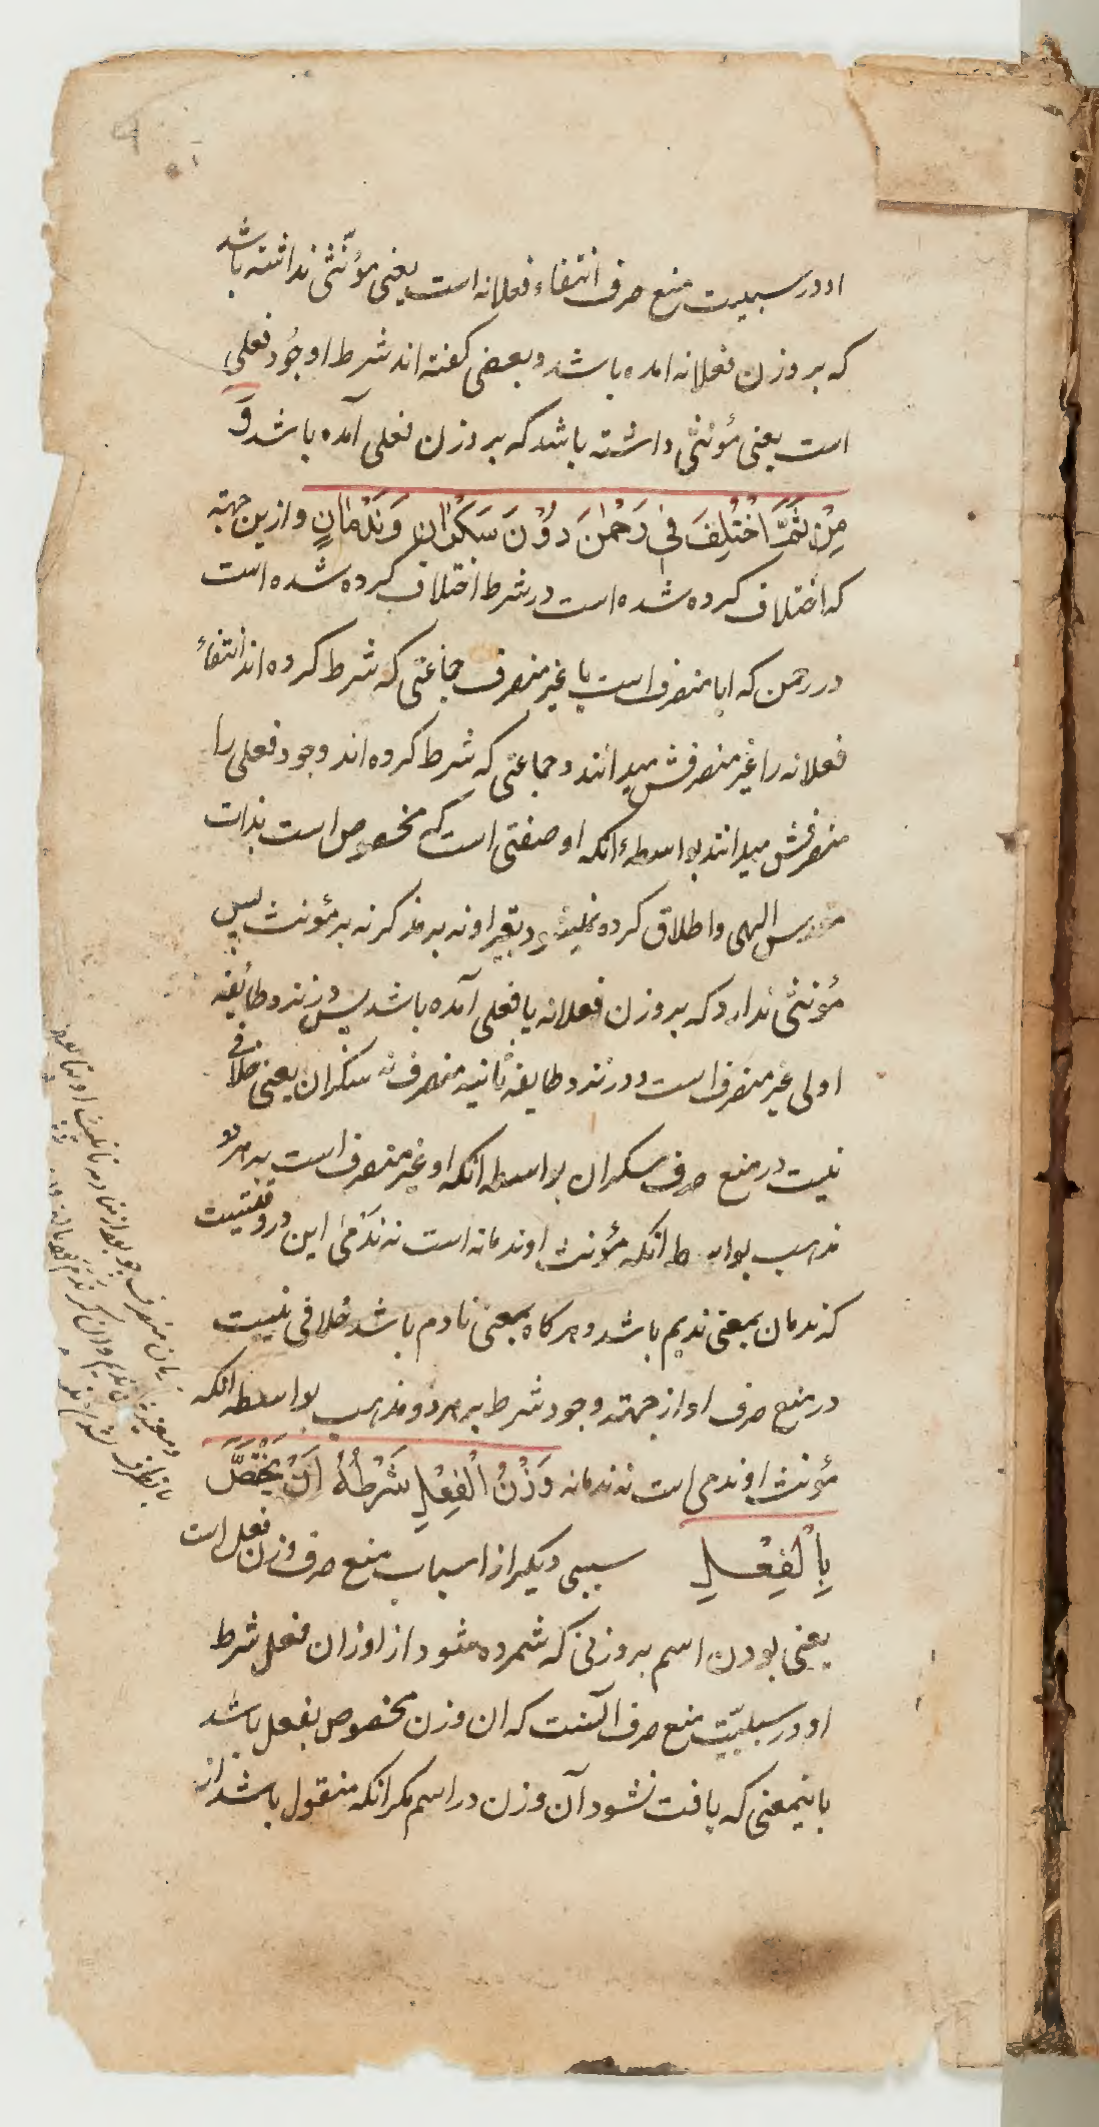 او در سببیت منع صرف انتفاء فعلانه است یعنی مؤنّثی نداشته باشد
که بر وزن فعلانه امده باشد و بعضی کفته اند شرط او وجُود فعلی
است یعنی مؤنثی داشته باشد که بر وزن فعلی آمده باشد وَ
مِنْ ثَمَّ اخْتُلِفَ فی رَحْمٰنَ دوُنَ سَکْرٰانَ وَ نَدْمٰانٍ و ازین جهته
که اختلاف کرده شده است در شرط اختلاف کرده شده است
در رحمن که ایا منصرف است یا غیر منصرف جماعتی که شرط کرده اند انتفاء
فعلانه را غیر منصرفش میدانند و جماعتی که شرط کرده اند وجود فعلی را
منصرفش میدانند بواسطهٔ انکه او صفتی است که مخصوص است بذات
مقدس الهی و اطلاق کرده نمیشود بغیر او نه بر مذکر نه بر مؤنث پس
مؤنثی ندارد که بر وزن فعلانه یا فعلی آمده باشد پس در نزد طائفه
اولی غیر منصرف است و در نزد طایفه ثانیه منصرف نه سکران یعنی خلافی
نیست در منع صرف سکران بواسطه انکه او غیر منصرف است بر هر دو
مذهب بواسطه انکه مؤنث او ندمانه است نه نَدْمیٰ این در وقتیست
که ندمان بمعنی ندیم باشد و هرکاه بمعنی نادم باشد خلافی نیست
در منع صرف او از جهته وجود شرط بر هر دو مذهب بواسطه انکه
مؤنث او ندمی است نه ندمانه وَزْنُ الْفِعْلِ شَرْطُهُ اَنْ یَخْتَصَّ
بِالْفِعْلِ سببی دیکر از اسباب منع صرف وزن فعل است
یعنی بودن اسم بر وزنی که شمرده شود از اوزان فعل شرط
او در سببیّت منع صرف آنست که ان وزن مخصوص بفعل باشد
باینمعنی که یافت نشود آن وزن در اسم مکر انکه منقول باشد از